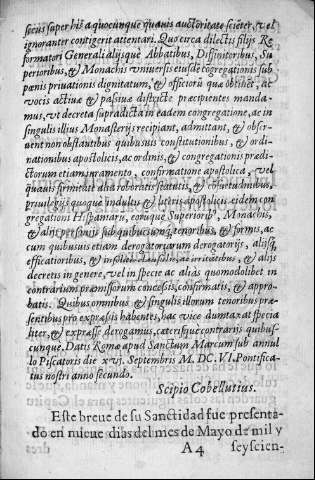 secus super his à quocunque quauis auctoritate sciẽter, vel
ignoranter contigerit attentari. Quo circa dilectis filijs Re
formatori Generali alijsque Abbatibus, Diffinitoribus, Su
perioribus, & Monachis vniuersis eiusdẽ cõgregationis sub
pœnis priuationis dignitatum, & officiorũ quæ obtinẽt, ac
vocis actiuæ & passiuæ districtè præcipientes manda-
mus, vt decreta supradicta in eadem congregatione, ac in
singulis illius Monasterijs recipiant, admittant, & obser-
uent non obstãtibus quibusuis constitutionibus, & ordi-
nationibus apostolicis, ac ordinis, & congregationis prædi-
ctorum etiam iuramento, confirmatione apostolica, vel
quauis firmitate alia roboratis statutis, & cõsuetudinibus,
priuilegijs quoque indultis & literis apostolicis eidem con
gregationi Hispaniarũ, eorumque Superiorib9, Monachis,
& alijs personis sub quibuscunq; tenoribus, & formis, ac
cum quibusuis etiam derogatoriarum derogatorijs, alijsq;
efficatioribus, & insolitis clausulis, ac irritãtibus, & alijs
decretis in genere, vel in specie ac alias quomodolibet in
contrarium præmissorum concessis, confirmatis, & appro-
batis. Quibus omnibus & singulis illorum tenoribus præ-
sentibus pro expressis habentes, hac vice dumtaxat specia
liter, & expressè derogamus, cæterisque contrarijs quibus-
cunque. Datis Romæ apud Sanctum Marcum sub annul
lo Piscatoris die xvj. Septembris M. DC. VI. Pontifica-
tus nostri anno secundo.
Scipio Cobellutius.
Este breue de su Sanctidad fue presenta-
do en nueue dias del mes de Mayo de mil y
A 4 seyscien-